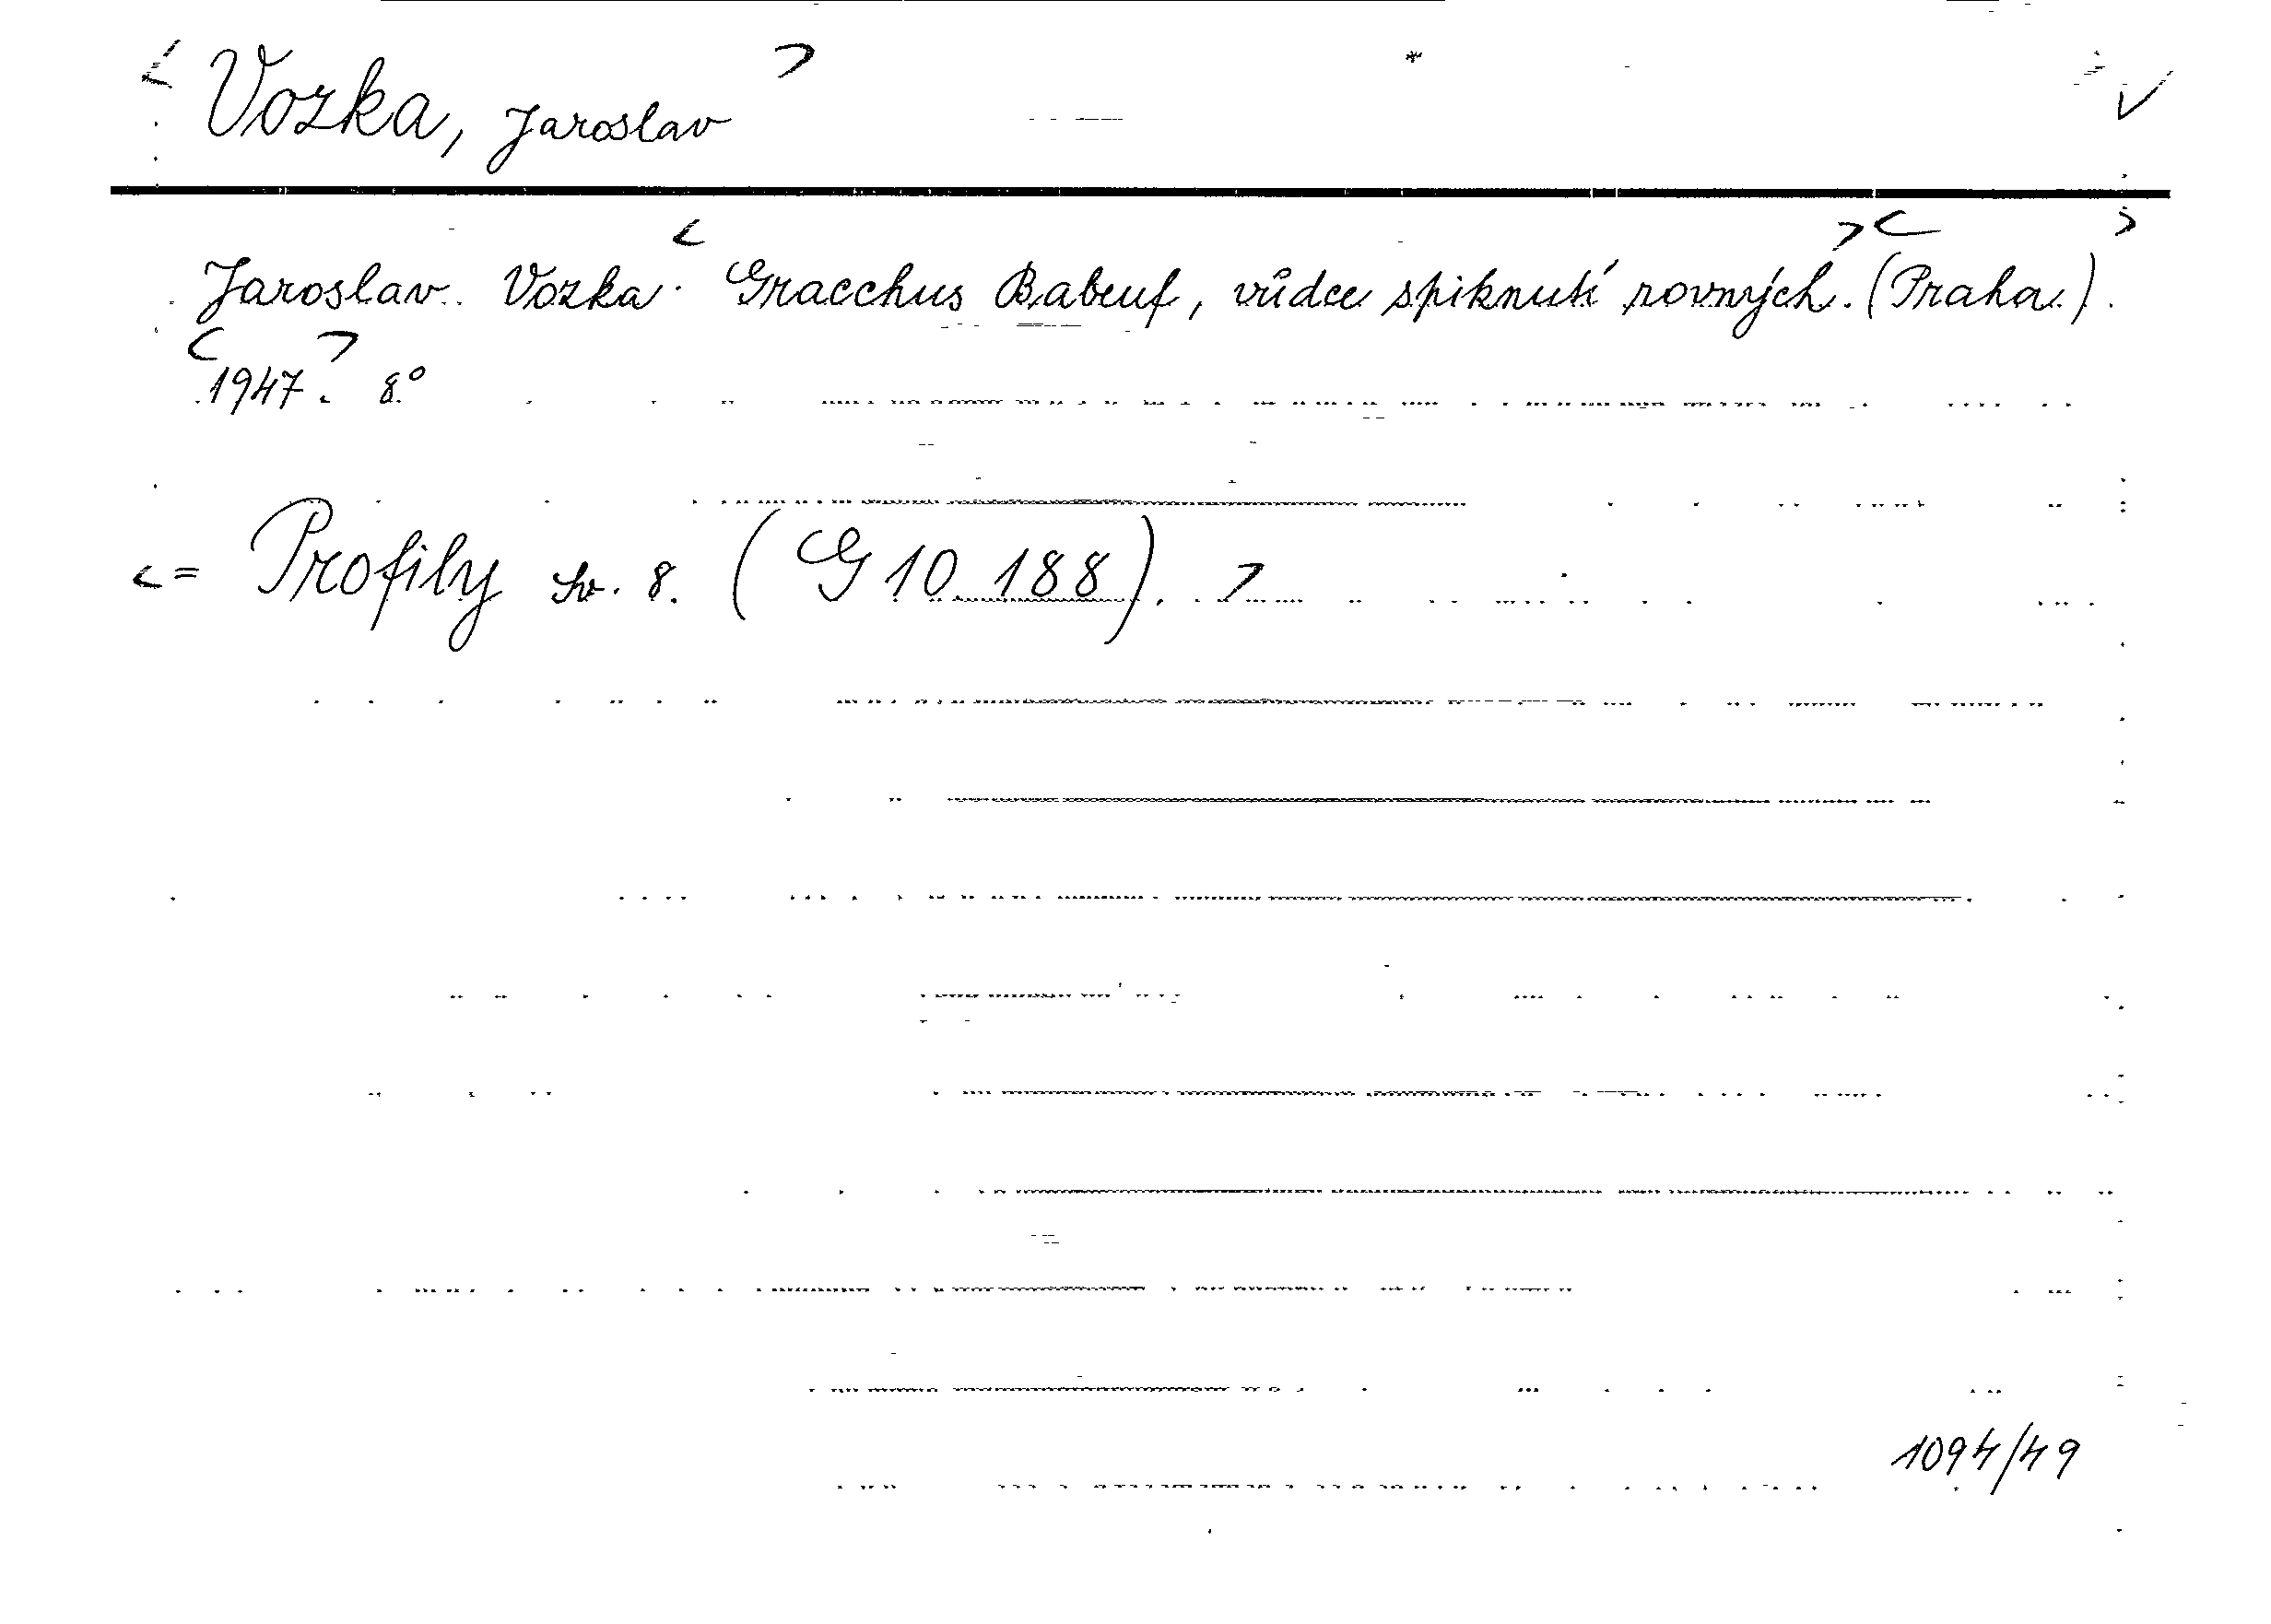 < Vozka, Jaroslav > V
Jaroslav Vozka. < Gracchus Babeuf, vůdce spiknutí rovných. > < (Praha.) >
< 1947. > 8°
< = Profily sv. 8. (G 10 188). >
1094/49